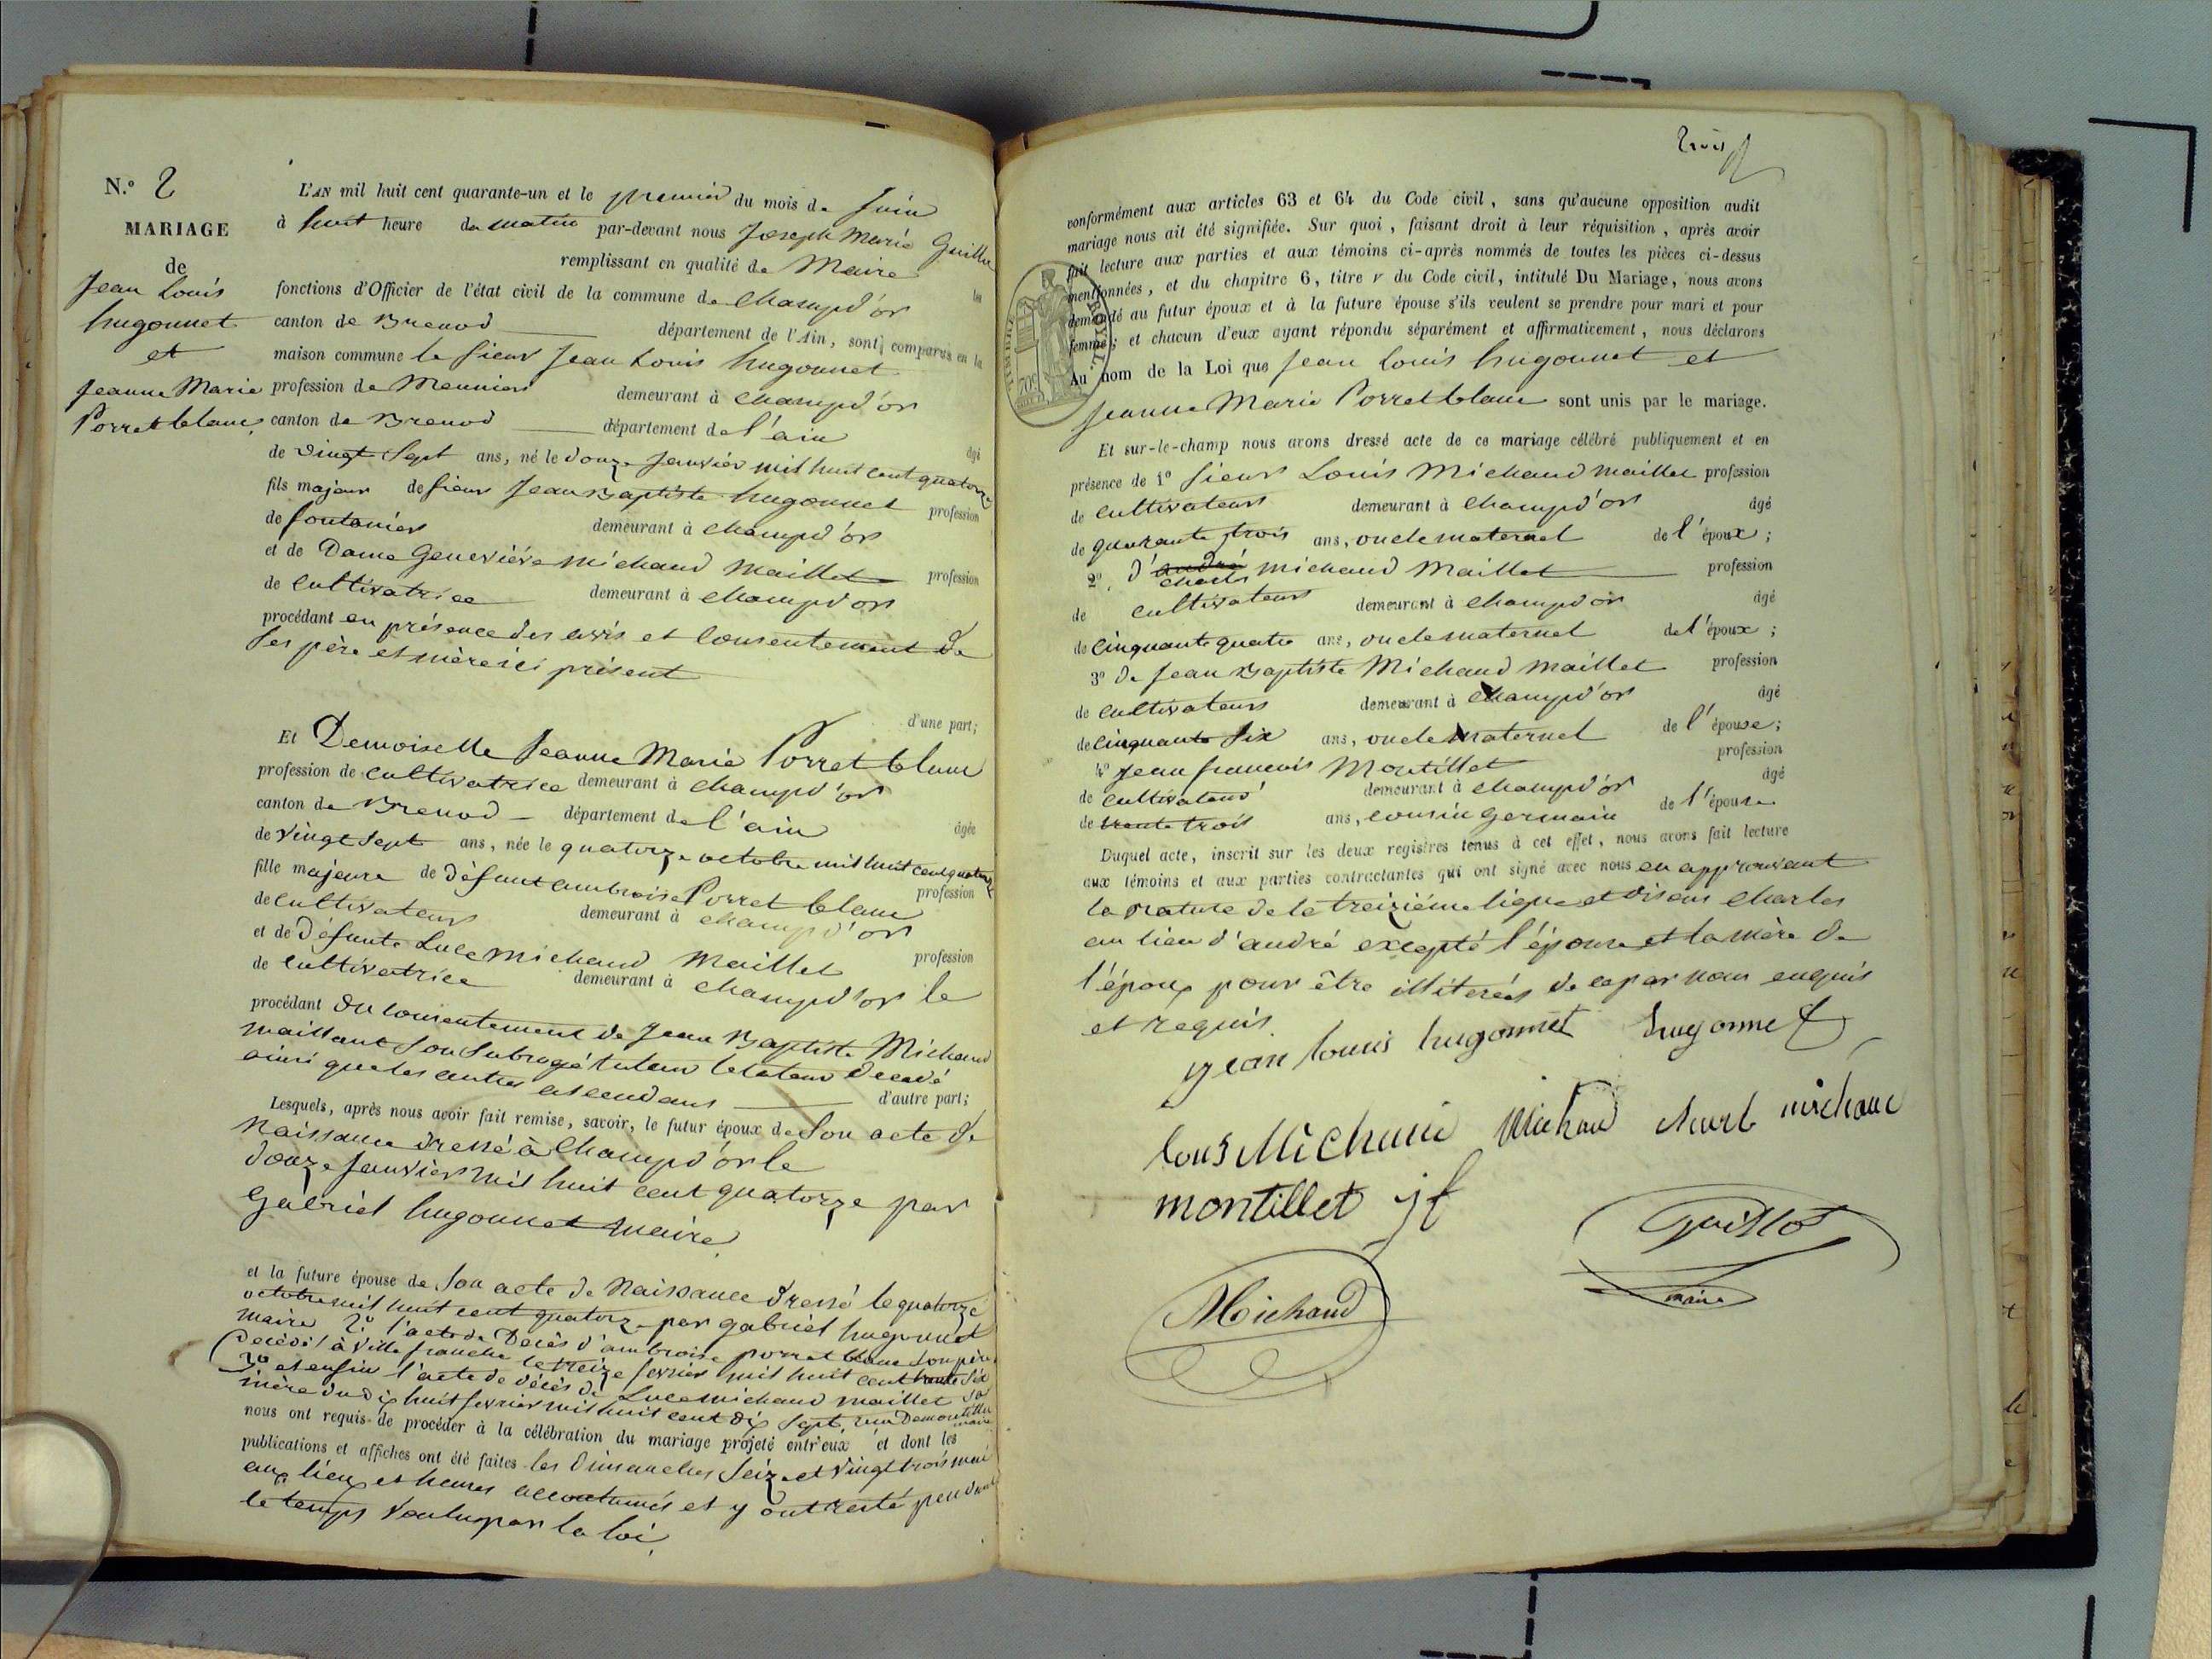 N.o 2
MARIAGE
de
Jean Louis
hugonnet
et
Jeanne Marie
Porret blanc
L'AN mil huit cent quarante-un et le premier du mois de Juin
à huit heure du matin par-devant nous Joseph Marie Guillot
remplissant en qualité de Maire les
fonctions d'Officier de l'état civil de la commune de Champd'or
canton de Brenod département de l'Ain, sont comparus en la
maison commune le sieur Jean Louis hugonnet
profession de Meunier demeurant à Champd'or
canton de Brenod département de l'ain
âgé
de vingt sept ans, né le douze janvier mil huit cent quatorze
fils majeur de sieur Jean Baptiste hugonnet profession
de fontanier demeurant à Champd'or
et de Dame Geneviève michaud Maillet profession
de cultivatrice demeurant à champd'or
procédant en présence des avis et consentement de
ses père et mère ici présent
d'une part;
Et Demoiselle Jeanne Marie Porret blanc
profession de cultivatrice demeurant à Champd'or
canton de Brenod département de l'ain
âgée
de vingt sept ans, née le quatorze octobre mil huit cent quatorze
fille majeure de défunt ambroise Porret blanc profession
de cultivateur demeurant à champd'or
et de défunte Luce michaud Maillet profession
de cultivatrice demeurant à champd'or le
procédant du consentement de Jean Baptiste Michaud
son subrogé tuteur
ainsi que les autres ascendans d'autre part;
Lesquels, après nous avoir fait remise, savoir, le futur époux de Son acte de
naissance dressé à Champd'or le
douze janvier mil huit cent quatorze par
gabriel hugonnet maire
et la future épouse de Son acte de Naissance dressé le quatorze
octobre mil huit cent quatorze par gabriel hugonnet
maire 2o l'acte de Décès d'ambroise porret blanc son père
décédé à Villefranche le treize fevrier mil huit cent trente six
3o et enfin l'acte de décès de Luce michaud maillet sa
mère du dix huit fevrier mil huit cent dix sept,
nous ont requis de procéder à la célébration du mariage projeté entr'eux et dont les
publications et affiches ont été faites les dimanches seize et vingt trois mai
aux lieux et heures accoutumés et y ont resté pendant
le temps voulu par la loi
trois
conformément aux articles 63 et 64 du Code civil, sans qu'aucune opposition audit
mariage nous ait été signifiée. Sur quoi, faisant droit à leur réquisition, après avoir
fait lecture aux parties et aux témoins ci-après nommés de toutes les pièces ci-dessus
mentionnées, et du chapitre 6, titre v du Code civil, intitulé Du Mariage, nous avons
demandé au futur époux et à la future épouse s'ils veulent se prendre pour mari et pour
femme; et chacun d'eux ayant répondu séparément et affirmativement, nous déclarons
Au nom de la Loi que Jean louis hugonnet et
Jeanne Marie Porret blanc sont unis par le mariage.
Et sur-le-champ nous avons dressé acte de ce mariage célébré publiquement et en
présence de 1o sieur Louis Michaud Maillet profession
de cultivateur demeurant à Champd'or âgé
de quarante trois ans, oncle maternel de l'époux;
2o d'andré charles michaud Maillet profession
de cultivateur demeurant à champd'or âgé
de cinquante quatre ans, oncle maternel de l'époux;
3o de Jean Baptiste Michaud Maillet profession
de cultivateur demeurant à Champd'or âgé
de cinquante six ans, oncle Maternel de l'épouse;
4o Jean françois Montillet profession
de cultivateur demeurant à champd'or âgé
de trente trois ans, cousin germain de l'épouse
Duquel acte, inscrit sur les deux registres tenus à cet effet, nous avons fait lecture
aux témoins et aux parties contractantes qui ont signé avec nous en approuvant
la rature de la treizième ligne et disons charles
au lieu d'andré excepté l'épouse et la mère de
l'époux pour être illiterés de ce par nous enquis
et requis.
jean louis hugonnet hugonnet
louis Michaud Michaud charl michaud
montillet jf
Michaud
Guillot
maire
TIMBRE ROYAL
70c